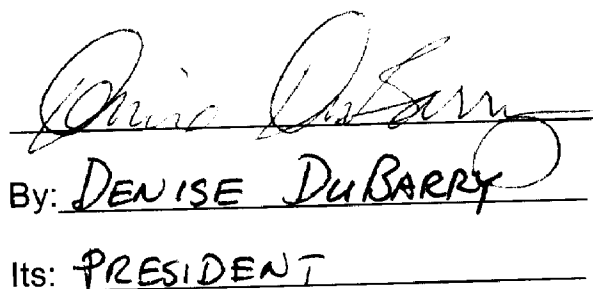 Denise DuBarry
By: DENISE DUBARRY
Its: PRESIDENT